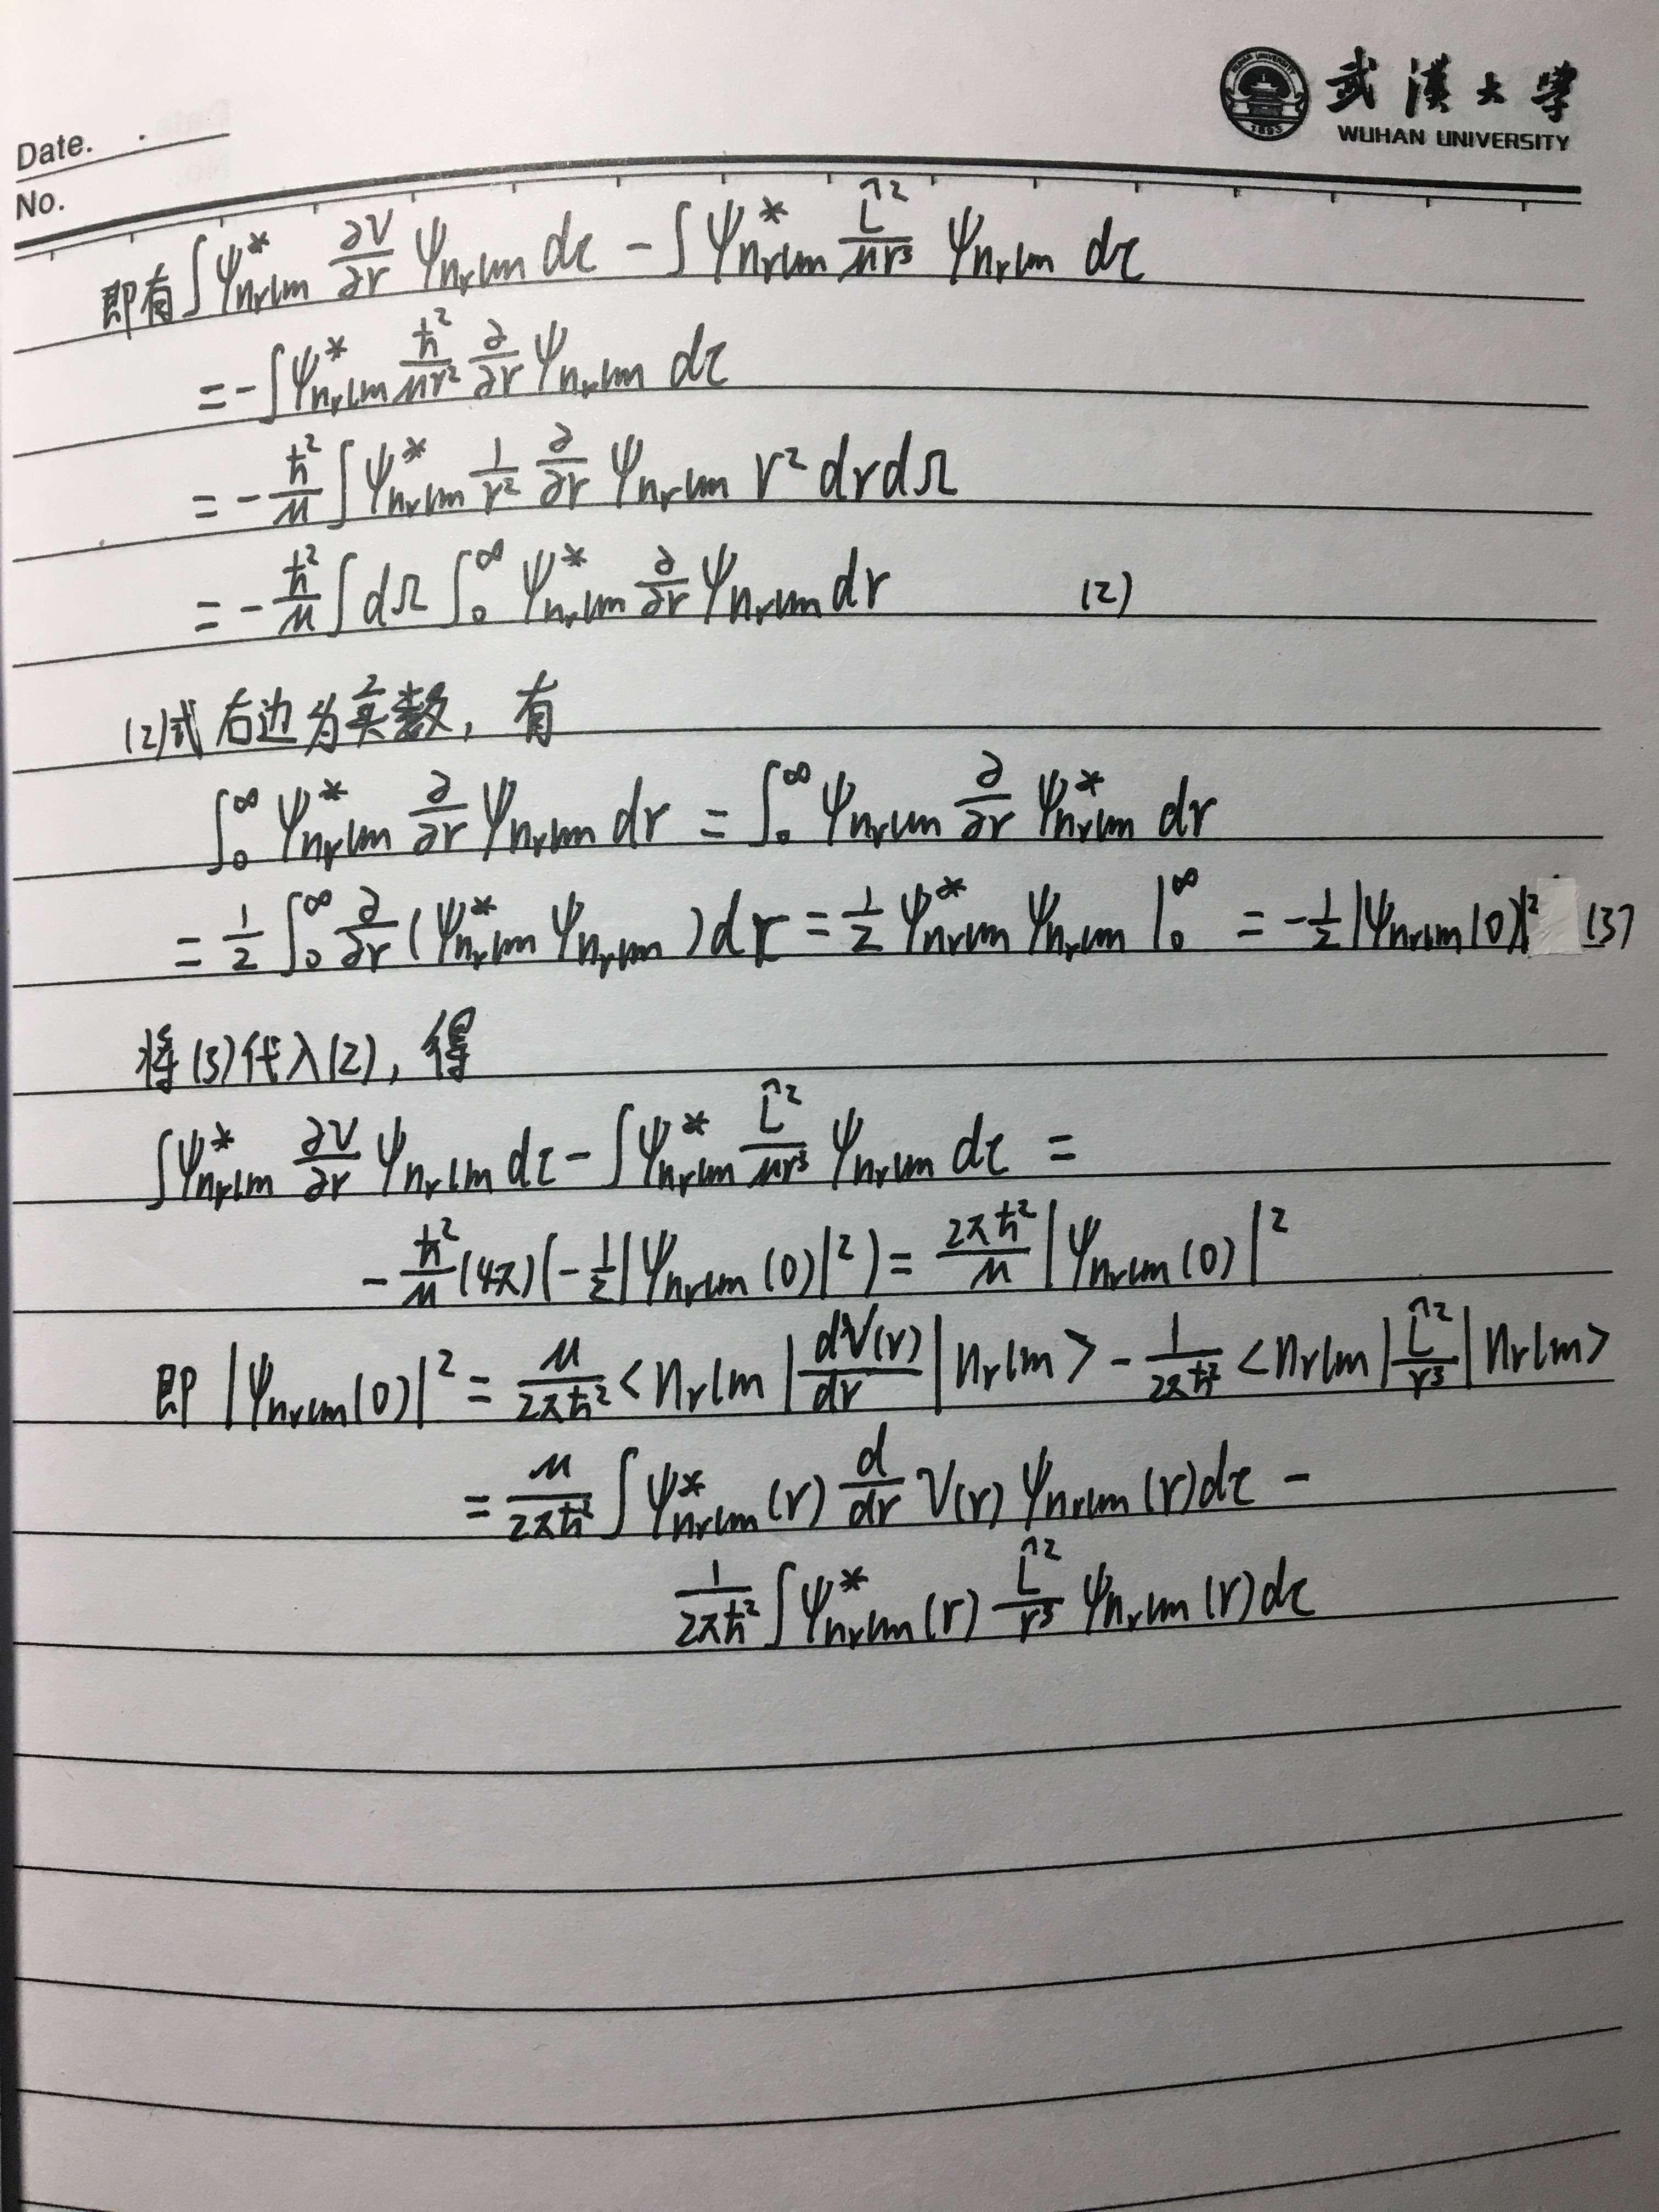 武汉大学
WUHAN UNIVERSITY
Date.
No.
即有∫ψ*_{n_r lm} ∂V/∂r ψ_{n_r lm} dτ - ∫ψ*_{n_r lm} L̂²/μr³ ψ_{n_r lm} dτ
= -∫ψ*_{n_r lm} ħ²/μr² ∂/∂r ψ_{n_r lm} dτ
= - ħ²/μ ∫ψ*_{n_r lm} 1/r² ∂/∂r ψ_{n_r lm} r² dr dΩ
= - ħ²/μ ∫dΩ ∫₀^∞ ψ*_{n_r lm} ∂/∂r ψ_{n_r lm} dr (2)
(2)式右边为实数, 有
∫₀^∞ ψ*_{n_r lm} ∂/∂r ψ_{n_r lm} dr = ∫₀^∞ ψ_{n_r lm} ∂/∂r ψ*_{n_r lm} dr
= 1/2 ∫₀^∞ ∂/∂r (ψ*_{n_r lm} ψ_{n_r lm}) dr = 1/2 ψ*_{n_r lm} ψ_{n_r lm} |₀^∞ = -1/2 |ψ_{n_r lm}(0)|² (3)
将(3)代入(2), 得
∫ψ*_{n_r lm} ∂V/∂r ψ_{n_r lm} dτ - ∫ψ*_{n_r lm} L̂²/μr³ ψ_{n_r lm} dτ =
- ħ²/μ (4π)(-1/2 |ψ_{n_r lm}(0)|²) = 2πħ²/μ |ψ_{n_r lm}(0)|²
即 |ψ_{n_r lm}(0)|² = μ/2πħ² <n_r lm| dV(r)/dr |n_r lm> - 1/2πħ² <n_r lm| L̂²/r³ |n_r lm>
= μ/2πħ² ∫ψ*_{n_r lm}(r) d/dr V(r) ψ_{n_r lm}(r) dτ -
1/2πħ² ∫ψ*_{n_r lm}(r) L̂²/r³ ψ_{n_r lm}(r) dτ